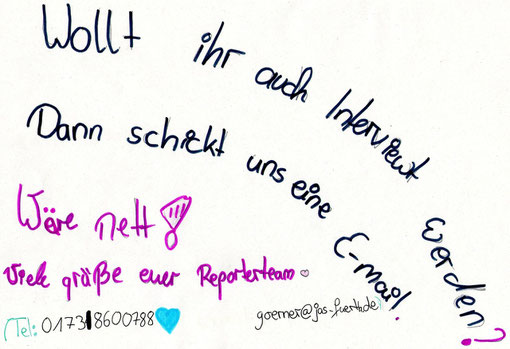 Wollt ihr auch Interviewt werden?
Dann schickt uns eine E-mail!
Wäre nett!
Viele größe euer Reporterteam
Tel: 01738600788
goerner@jas-fuerth.de